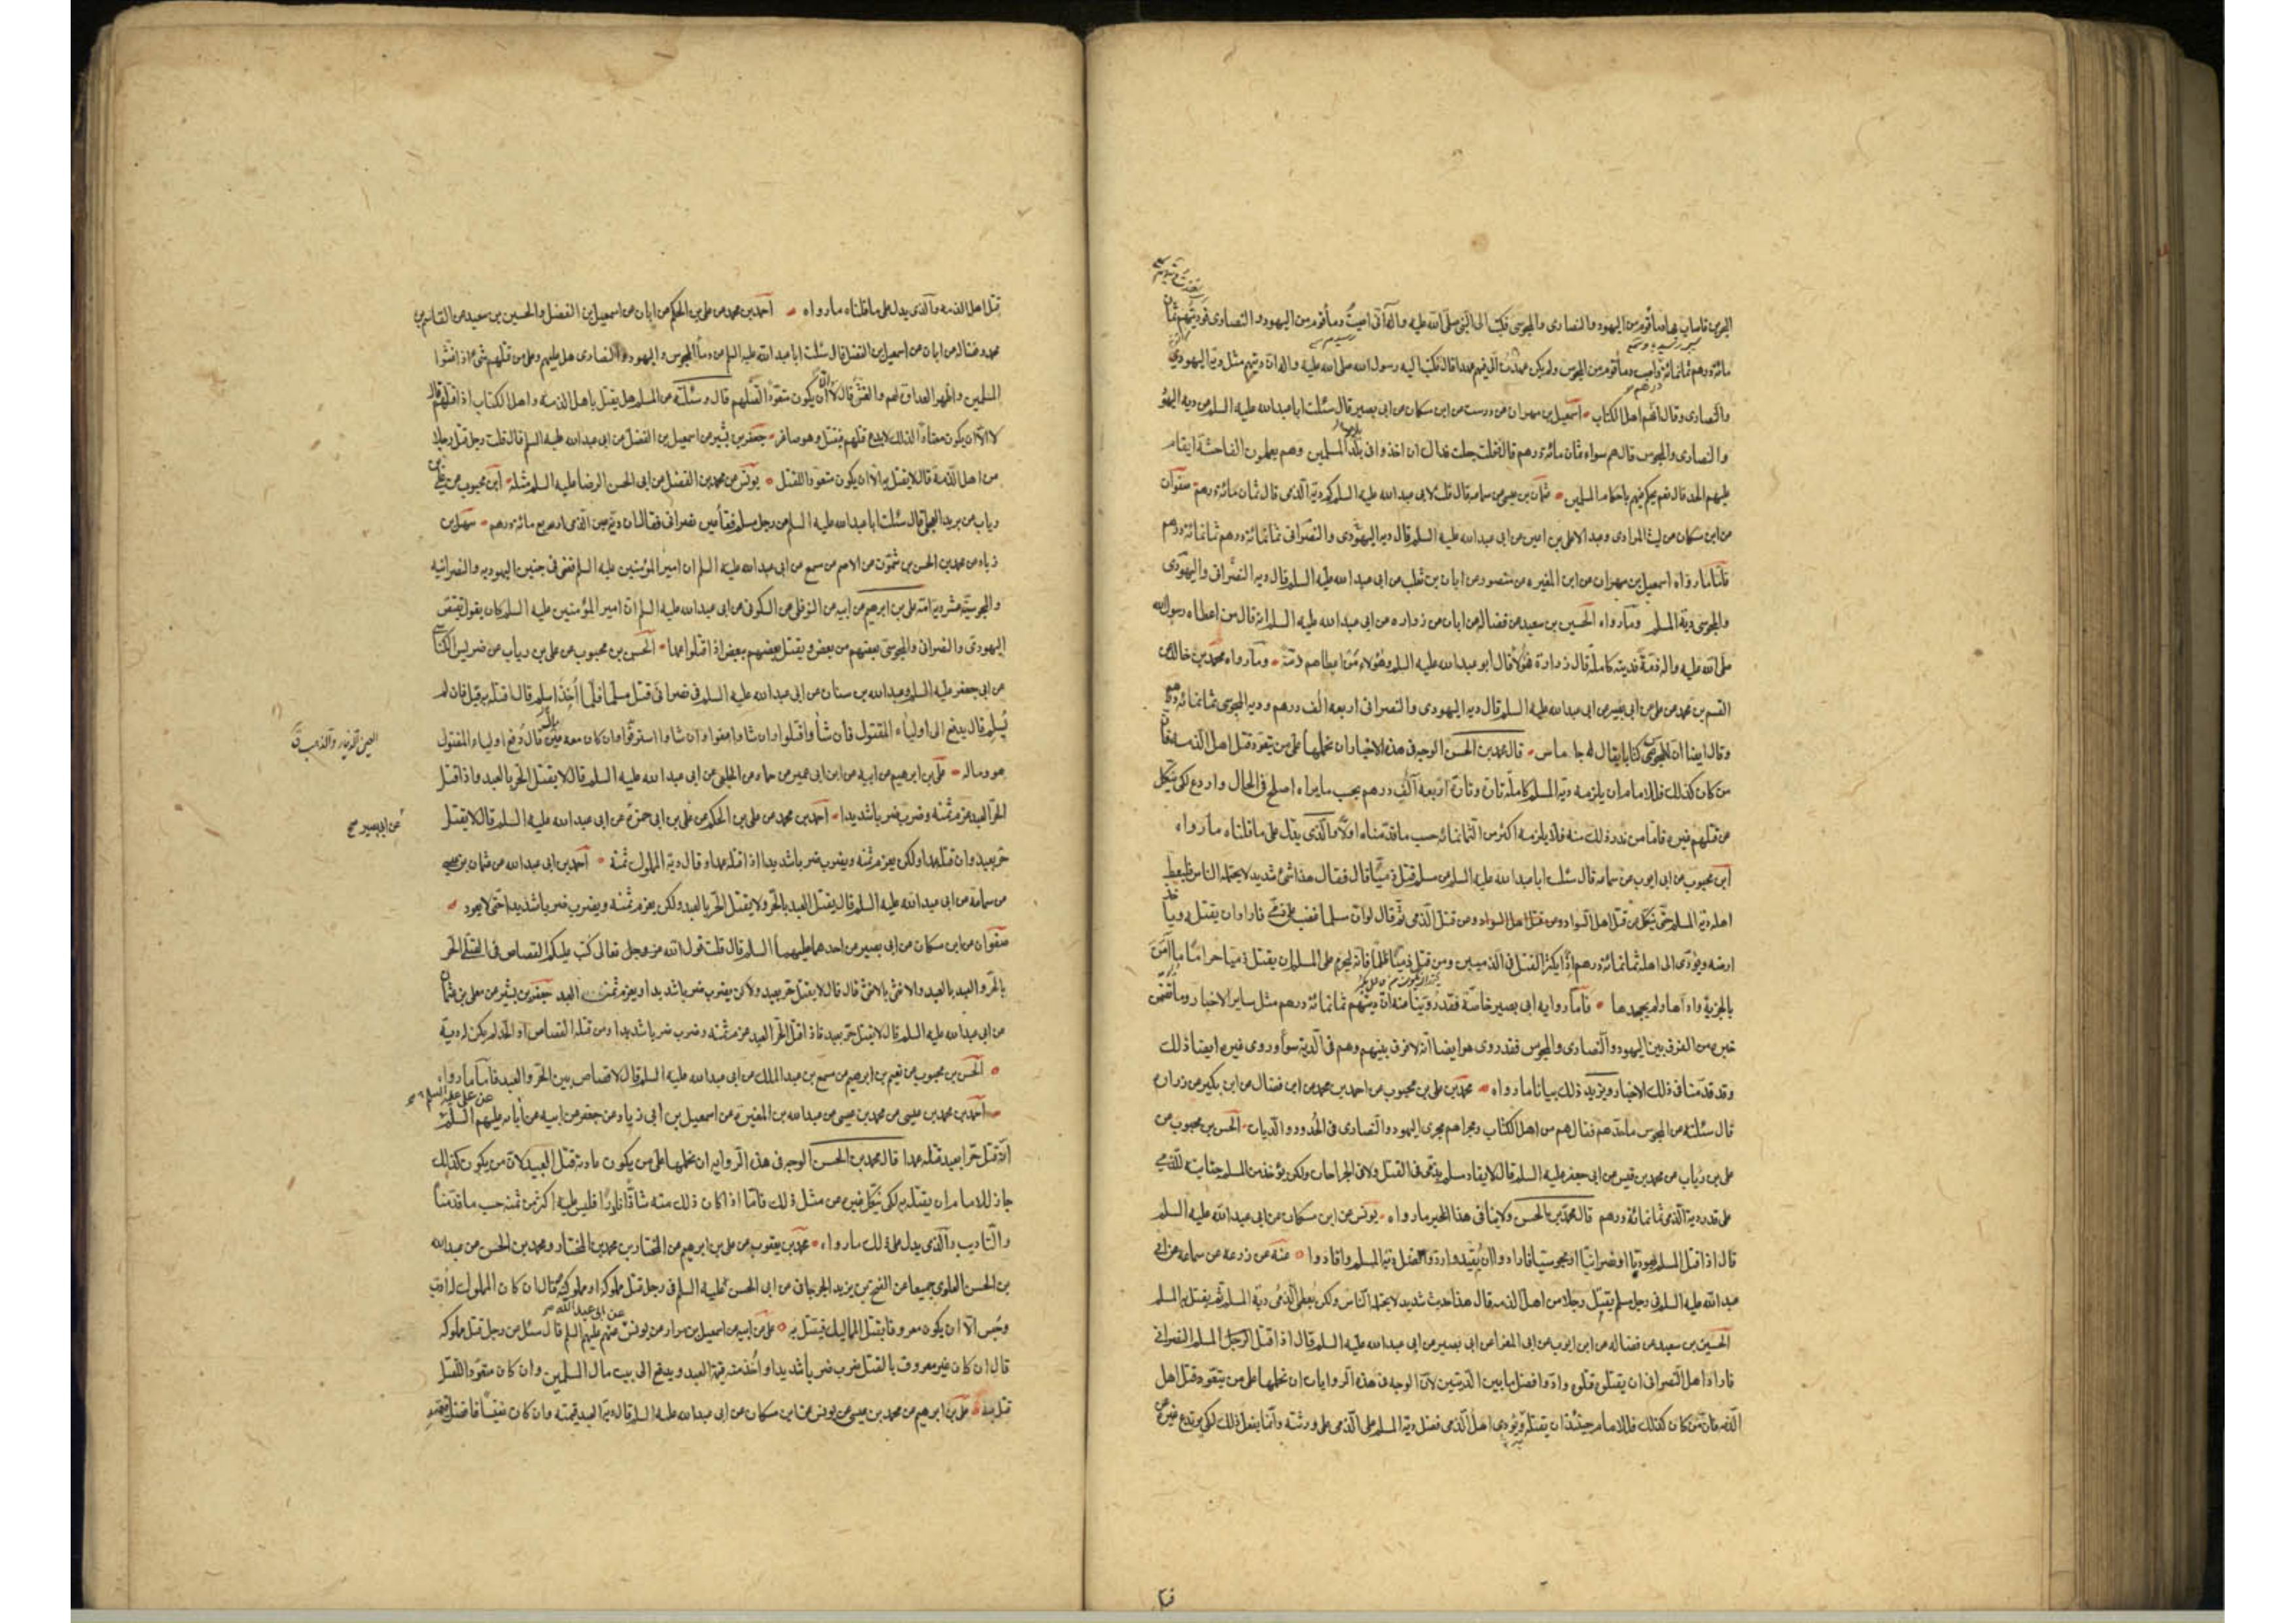 مائة درهم ثمانمائة واصب دماء قوم من المجوس ولم يكن عهد الى فيهم عهدا قال فكتب اليه رسول الله صلى الله عليه واله ان ديتهم مثل دية اليهودى
والنصارى وقال انهم اهل الكتاب اسمعيل بن مهران عن درست عن ابن مسكان عن ابى بصير قال سئلت ابا عبد الله عليه السلم عن دية اليهود
والنصارى والمجوس قال هم سواء ثمان مائة درهم قال قلت جعلت فداك ان اخذوا فى بلاد المسلمين وهم يعملون الفاحشة ايقام
عليهم الحد قال نعم يحكم فيهم باحكام المسلمين عثمان بن عيسى عن سماعه قال قلت لابى عبد الله عليه السلم كم دية الذمى قال ثمان مائة درهم صفوان
عن ابن مسكان عن ليث المرادى وعبد الاعلى بن اعين عن ابى عبد الله عليه السلم قال دية اليهودى والنصرانى ثمانمائة درهم ثمانمائة درهم
فاما ما رواه اسمعيل بن مهران عن ابن المغيره عن منصور عن ابان بن تغلب عن ابى عبد الله عليه السلم قال دية النصرانى واليهودى
والمجوسى دية المسلم وما رواه الحسين بن سعيد عن فضاله عن ابان عن زراره عن ابى عبد الله عليه السلم انه قال من اعطاه رسول الله
صلى الله عليه واله ذمة فديته كاملة قال زرارة فهؤلاء قال ابو عبد الله عليه السلم وهؤلاء من اعطاهم ذمة وما رواه محمد بن خالد عن
القسم بن محمد عن على عن ابى بصير عن ابى عبد الله عليه السلم قال دية اليهودى والنصرانى اربعه الف درهم ودية المجوسى ثمانمائة درهم
وقال ايضا ان للمجوس كتابا يقال له جاماس قال محمد بن الحسن الوجه فى هذه الاخبار ان نحملها على من يتعود قتل اهل الذمه فان
من كان كذلك فللامام ان يلزمه دية المسلم كاملة تارة وتارة اربعة آلف درهم بحسب ما يراه اصلح فى الحال واردع لكى ينكل
عن قتلهم غيره فاما من ندر ذلك منه فلا يلزمه اكثر من الثمانمائه حسب ما قدمناه اولا والذى يدل على ما قلناه ما رواه
ابن محبوب عن ابى ايوب عن سماعه قال سئلت ابا عبد الله عليه السلم عن مسلم قتل ذميا قال فقال هذا شئ شديد لا يحتمله الناس فليعط
اهله دية المسلم حتى ينكل عن قتل اهل السواد وعن قتل الذمى ثم قال لو ان مسلما غضب على ذمى فاراد ان يقتله وياخذ
ارضه ويؤدى الى اهله ثمانمائة درهم اذا يكثر القتل فى الذميين ومن قتل ذميا ظلما فانه ليحرم على المسلم ان يقتل ذميا حراما ما آمن
بالجزية واداها ولم يجحدها فاما رواية ابى بصير خاصة فقد روينا عنه ان ديتهم ثمانمائة درهم مثل ساير الاخبار وما تضمن
خبره من الفرق بين اليهود والنصارى والمجوس فقد روى هو ايضا انه لا فرق بينهم وهم فى الدية سواء وروى غيره ايضا ذلك
وقد قدمنا فى ذلك الاخبار ويزيد ذلك بيانا ما رواه محمد بن على بن محبوب عن احمد بن محمد عن ابن فضال عن ابن بكير عن زرارة
قال سئلته عن المجوس ما حدهم فقال هم من اهل الكتاب ومجراهم مجرى اليهود والنصارى فى الحدود والديات الحسن بن محبوب عن
على بن رئاب عن محمد بن قيس عن ابى جعفر عليه السلم قال لا يقاد مسلم بذمى فى القتل ولا فى الجراحات ولكن يؤخذ من المسلم جنايته للذمى
على قدر دية الذمى ثمانمائة درهم قال محمد بن الحسن ولا ينافى هذا الخبر ما رواه يونس عن ابن مسكان عن ابى عبد الله عليه السلم
قال اذا قتل المسلم يهوديا او نصرانيا او مجوسيا فارادوا ان يقيدوا ردوا فضل دية المسلم واقادوا عنه عن زرعه عن سماعه عن ابى
عبد الله عليه السلم فى رجل مسلم يقتل رجلا من اهل الذمه قال هذا حديث شديد لا يحتمله الناس ولكن يعطى الذمى دية المسلم ثم يقتل به المسلم
الحسين بن سعيد عن فضاله عن ابى ايوب عن ابى المغرا عن ابى بصير عن ابى عبد الله عليه السلم قال اذا قتل الرجل المسلم النصرانى
فاراد اهل النصرانى ان يقتلوه قتلوه وادوا فضل ما بين الديتين لان الوجه فى هذه الروايات ان نحملها على من يتعود قتل اهل
الذمه فان من كان كذلك فللامام حينئذ ان يقتله ويؤدى اهل الذمى فضل دية المسلم على الذمى على ورثته وانما يفعل ذلك لكى يرتدع غيره عن
قتل اهل الذمه والذى يدل على ما قلناه ما رواه احمد بن محمد عن على بن الحكم عن ابان عن اسمعيل بن الفضل والحسين بن سعيد عن القاسم بن
محمد وفضاله عن ابان عن اسمعيل بن الفضل قال سئلت ابا عبد الله عليه السلم عن دماء المجوس واليهود والنصارى هل عليهم وعلى من قتلهم شئ اذا غشوا
المسلمين واظهروا العداوة لهم والغش قال لا الا ان يكون متعودا لقتلهم قال وسئلته عن المسلم هل يقتل باهل الذمه واهل الكتاب اذا قتلهم قال
لا الا ان يكون معتادا لذلك لا يدع قتلهم فيقتل وهو صاغر جعفر بن بشير عن اسمعيل بن الفضل عن ابى عبد الله عليه السلم قال قلت رجل قتل رجلا
من اهل الذمة قال لا يقتل به الا ان يكون متعودا للقتل يونس عن محمد بن الفضل عن ابى الحسن الرضا عليه السلم مثله ابن محبوب عن على بن
رياب عن بريد العجلى قال سئلت ابا عبد الله عليه السلم عن رجل مسلم فقأ عين نصرانى فقال ان دية عين الذمى اربع مائة درهم سهل بن
زياد عن محمد بن الحسن بن شمون عن الاصم عن مسمع عن ابى عبد الله عليه السلم ان امير المؤمنين عليه السلم قضى فى جنين اليهوديه والنصرانيه
والمجوسية عشر دية امه على بن ابرهيم عن ابيه عن النوفلى عن السكونى عن ابى عبد الله عليه السلم ان امير المؤمنين عليه السلم كان يقول يقتص
اليهودى والنصرانى والمجوسى بعضهم من بعض ويقتل بعضهم ببعض اذا قتلوا عمدا الحسن بن محبوب عن على بن رياب عن ضريس الكناسى
عن ابى جعفر عليه السلم وعبد الله بن سنان عن ابى عبد الله عليه السلم فى نصرانى قتل مسلما فلما اخذ اسلم قال اقتله به قيل فان لم
يسلم قال يدفع الى اولياء المقتول فان شاؤا قتلوا وان شاوا عفوا وان شاوا استرقوا وان كان معه عين مال قال دفع اولياء المقتول
هو وماله على بن ابراهيم عن ابيه عن ابن ابى عمير عن حماد عن الحلبى عن ابى عبد الله عليه السلم قال لا يقتل الحر بالعبد واذا قتل
الحر العبد غرم ثمنه وضرب ضربا شديدا احمد بن محمد عن على بن الحكم عن على بن ابى حمزة عن ابى عبد الله عليه السلم قال لا يقتل
عن ابى بصير صح
حر بعبد وان قتله عمدا ولكن يغرم ثمنه ويضرب ضربا شديدا اذا قتله عمدا وقال دية المملوك ثمنه احمد بن ابى عبد الله عن عثمان بن عيسى
عن سماعه عن ابى عبد الله عليه السلم قال يقتل العبد بالحر ولا يقتل الحر بالعبد ولكن يغرم ثمنه ويضرب ضربا شديدا حتى لا يعود
صفوان عن ابن مسكان عن ابى بصير عن احدهما عليهما السلم قال قلت قول الله عز وجل تعالى كتب عليكم القصاص فى القتلى الحر
بالحر والعبد بالعبد والانثى بالانثى قال قال لا يقتل حر بعبد ولكن يضرب ضربا شديدا ويغرم ثمن العبد جعفر بن بشير عن معلى بن عثمان
عن ابى عبد الله عليه السلم قال لا يقتل حر بعبد فاذا قتل الحر العبد غرم ثمنه وضرب ضربا شديدا ومن قتله القصاص او الحد لم يكن له دية
الحسن بن محبوب عن نعيم بن ابرهيم عن مسمع بن عبد الملك عن ابى عبد الله عليه السلم قال لا قصاص بين الحر والعبد فاما ما رواه
احمد بن محمد بن عيسى عن محمد بن عيسى عن عبد الله بن المغيرة عن اسمعيل بن ابى زياد عن جعفر عن ابيه عن آبائه عليهم السلم عن على عليه السلم
انه قتل حرا بعبد قتله عمدا قال محمد بن الحسن الوجه فى هذه الروايه ان نحملها على من يكون عادته قتل العبيد لان من يكون كذلك
جاز للامام ان يقتله به لكى ينكل غيره عن مثل ذلك فاما اذا كان ذلك منه شاذا نادرا فليس عليه اكثر من ثمنه حسب ما قدمنا
والتاديب والذى يدل على ذلك ما رواه محمد بن يعقوب عن على بن ابرهيم عن المختار بن محمد بن المختار ومحمد بن الحسن عن عبد الله
بن الحسن العلوى جميعا عن الفتح بن يزيد الجرجانى عن ابى الحسن عليه السلم فى رجل قتل مملوكه او مملوكته قال ان كان المملوك له ادب
وحبس الا ان يكون معروفا بقتل المماليك فيقتل به على عن ابيه عن اسمعيل بن مرار عن يونس عنهم عليهم السلم قال سئل عن رجل قتل مملوكه
قال ان كان غير معروف بالقتل ضرب ضربا شديدا واخذ منه قيمة العبد ويدفع الى بيت مال المسلمين وان كان متعودا للقتل
قتل به على بن ابرهيم عن محمد بن عيسى عن يونس عن ابن مسكان عن ابى عبد الله عليه السلم قال دية العبد قيمته وان كان نفيسا فافضل قيمته